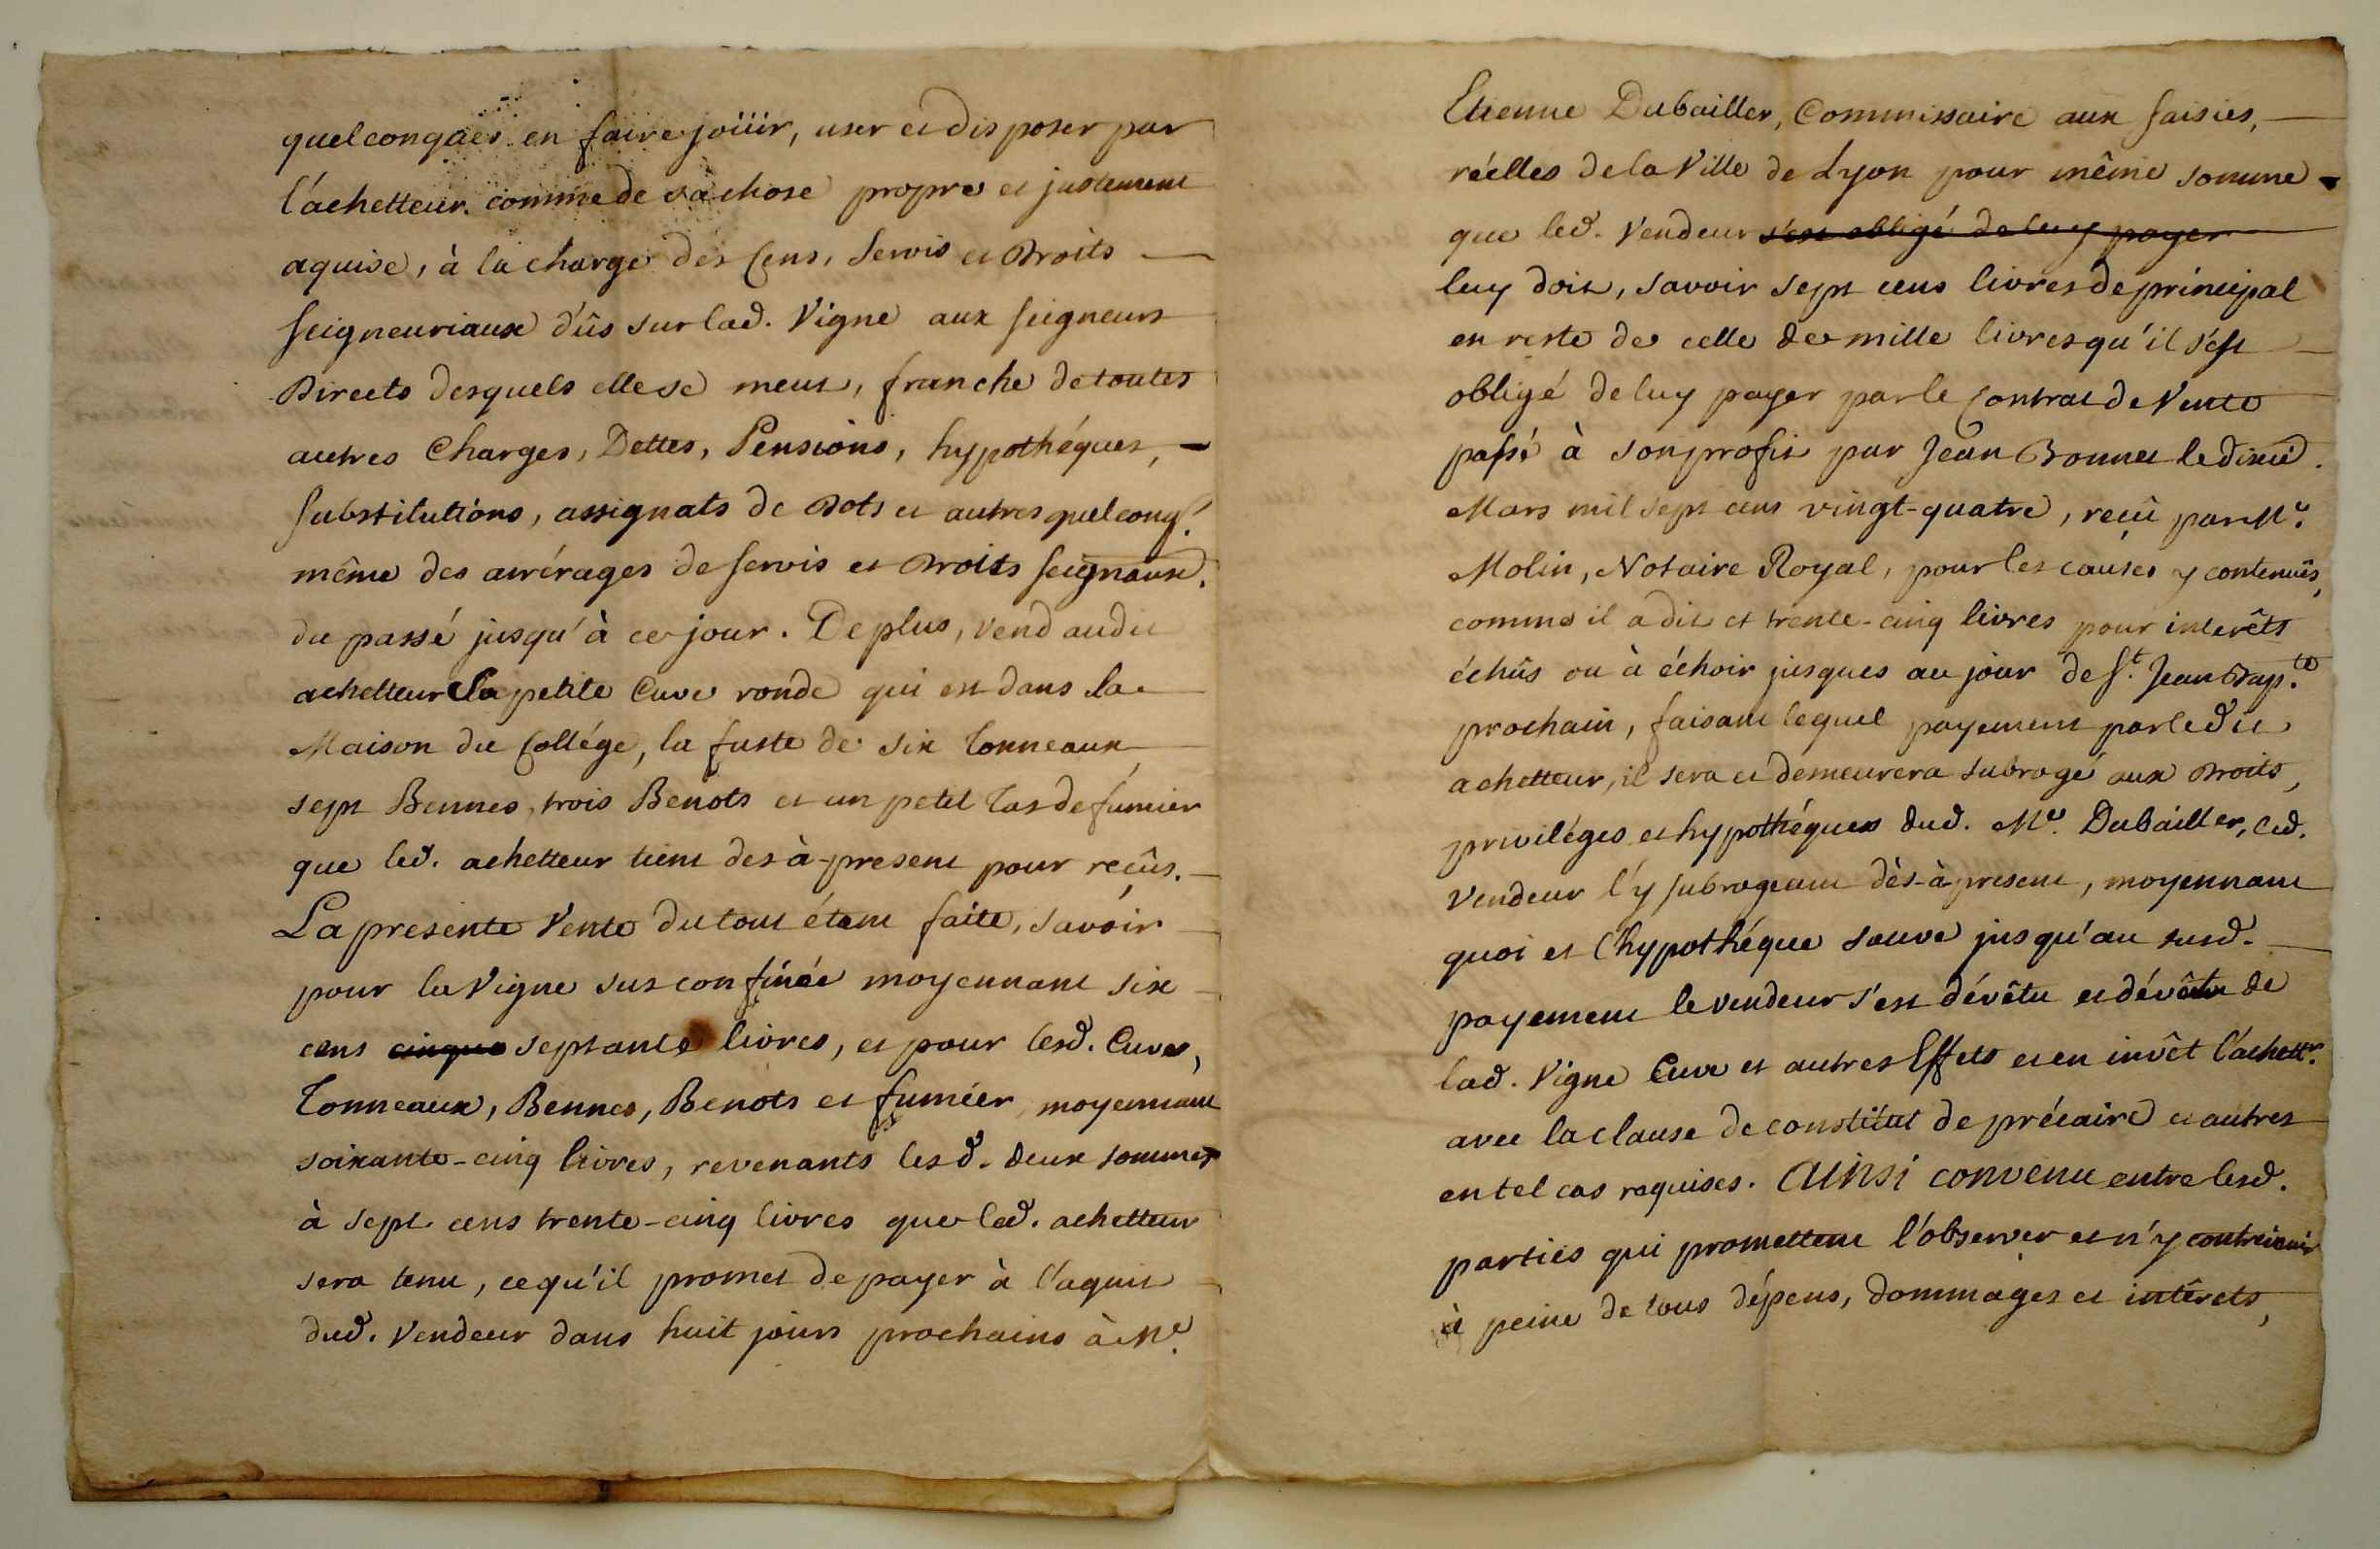 quelconques en faire joüir, user et disposer par
l'achetteur comme de sa chose propre et justement
aquise, à la charge des Cens, Servis et Droits
Seigneuriaux dûs sur lad. Vigne aux Seigneurs
Directs desquels elle se meut, franche de toutes
autres Charges, Dettes, Pensions, hypothéques,
Substitutions, assignats de Dots et autres quelconq.
même des arrérages de Servis et Droits Seignaux.
du passé jusqu'à ce jour. De plus, vend audit
achetteur la petite Cuve ronde qui est dans la
Maison du Collége, la fuste de six Tonneaux
sept Bennes, trois Benots et un petit Tas de fumier
que led. achetteur tient des à-present pour reçûs.
La presente Vente du tout étant faite, savoir
pour la Vigne sus confinée moyennant six
cens cinqua septante livres, et pour lesd. Cuves,
Tonneaux, Bennes, Benots et fumier moyennant
soixante-cinq livres, revenants lesd. deux sommes
à sept cens trente-cinq livres que led. achetteur
sera tenu, ce qu'il promet de payer à l'aquit
dud. Vendeur dans huit jours prochains à Me.
Etienne Dubailler, Commissaire aux Saisies,
réelles de la Ville de Lyon pour même somme
que led. Vendeur s'est obligé de luy payer
luy doit, savoir sept cens livres de principal
en reste de celle de mille livres qu'il s'est
obligé de luy payer par le Contrat de Vente
passé à son profit par Jean Bonnet le dixié.
Mars mil sept cens vingt-quatre, reçû par Me.
Molin, Notaire Royal, pour les causes y contenuës,
comme il a dit et trente-cinq livres pour interêts
échûs ou à échoir jusques au jour de St. Jean Bap.te
prochain, faisant lequel payement par ledit
achetteur, il sera et demeurera subrogé aux Droits,
priviléges et hypothéques dud. Me. Dubailler, led.
Vendeur l'y subrogeant dès-à-present, moyennant
quoi et l'hypothéque sauve jusqu'au susd.
payement le vendeur s'est dévêtu et dévêtu de
lad. Vigne Cuve et autres Effets et en invêt l'achettr.
avec la clause de constitut de précaire et autres
en tel cas requises. Ainsi convenu entre lesd.
parties qui promettent l'observer et n'y contrevenir
à peine de tous dépens, dommages et intêrets,